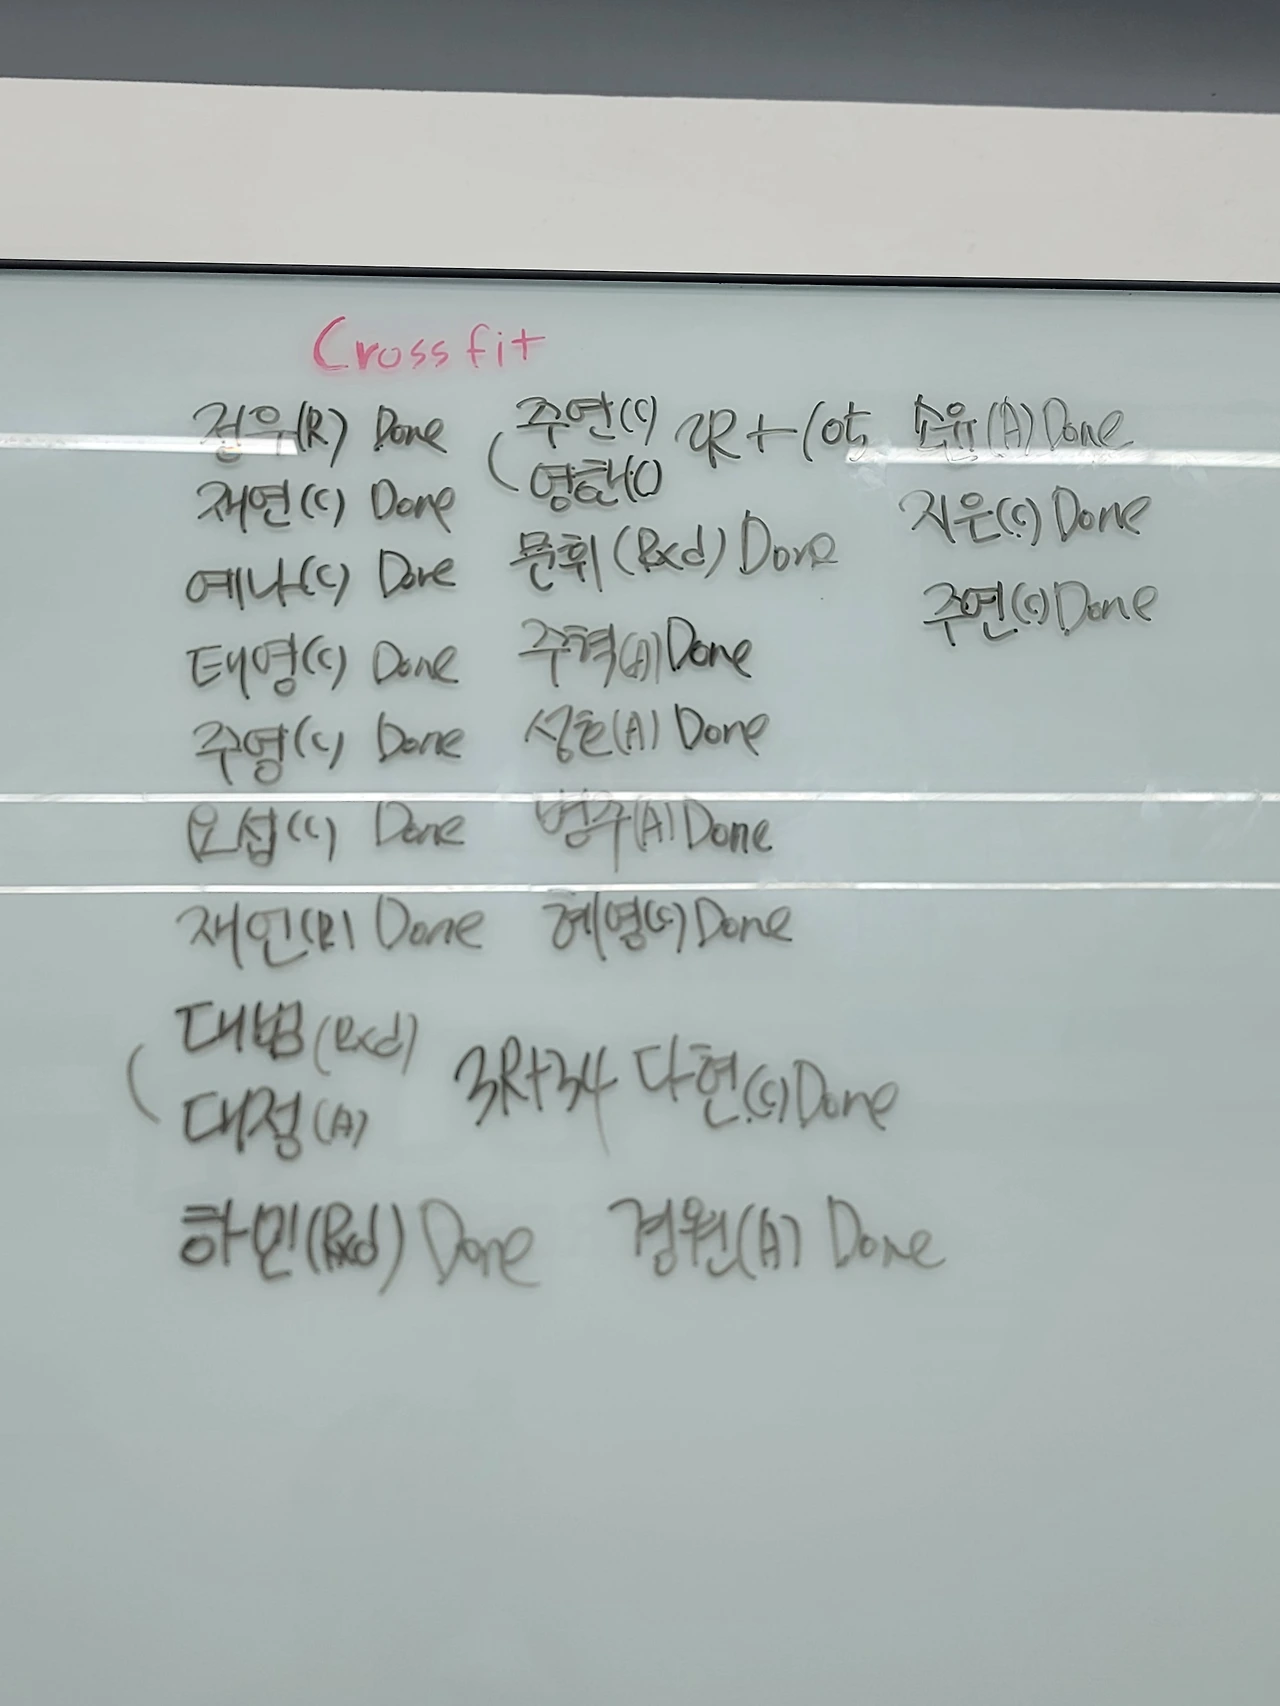 Crossfit
정우(R) Done
재연(C) Done
예나(C) Done
태영(C) Done
주영(C) Done
요섭(C) Done
재인(R) Done
대범(Rxd)
대정(A)
3R+34
하민(Rxd) Done
주연(C)
영한(C)
2R+
문휘(Rxd) Done
주혁(A) Done
성호(A) Done
병주(A) Done
혜영(C) Done
다현(C) Done
경원(A) Done
소윤(A) Done
지은(C) Done
주연(C) Done